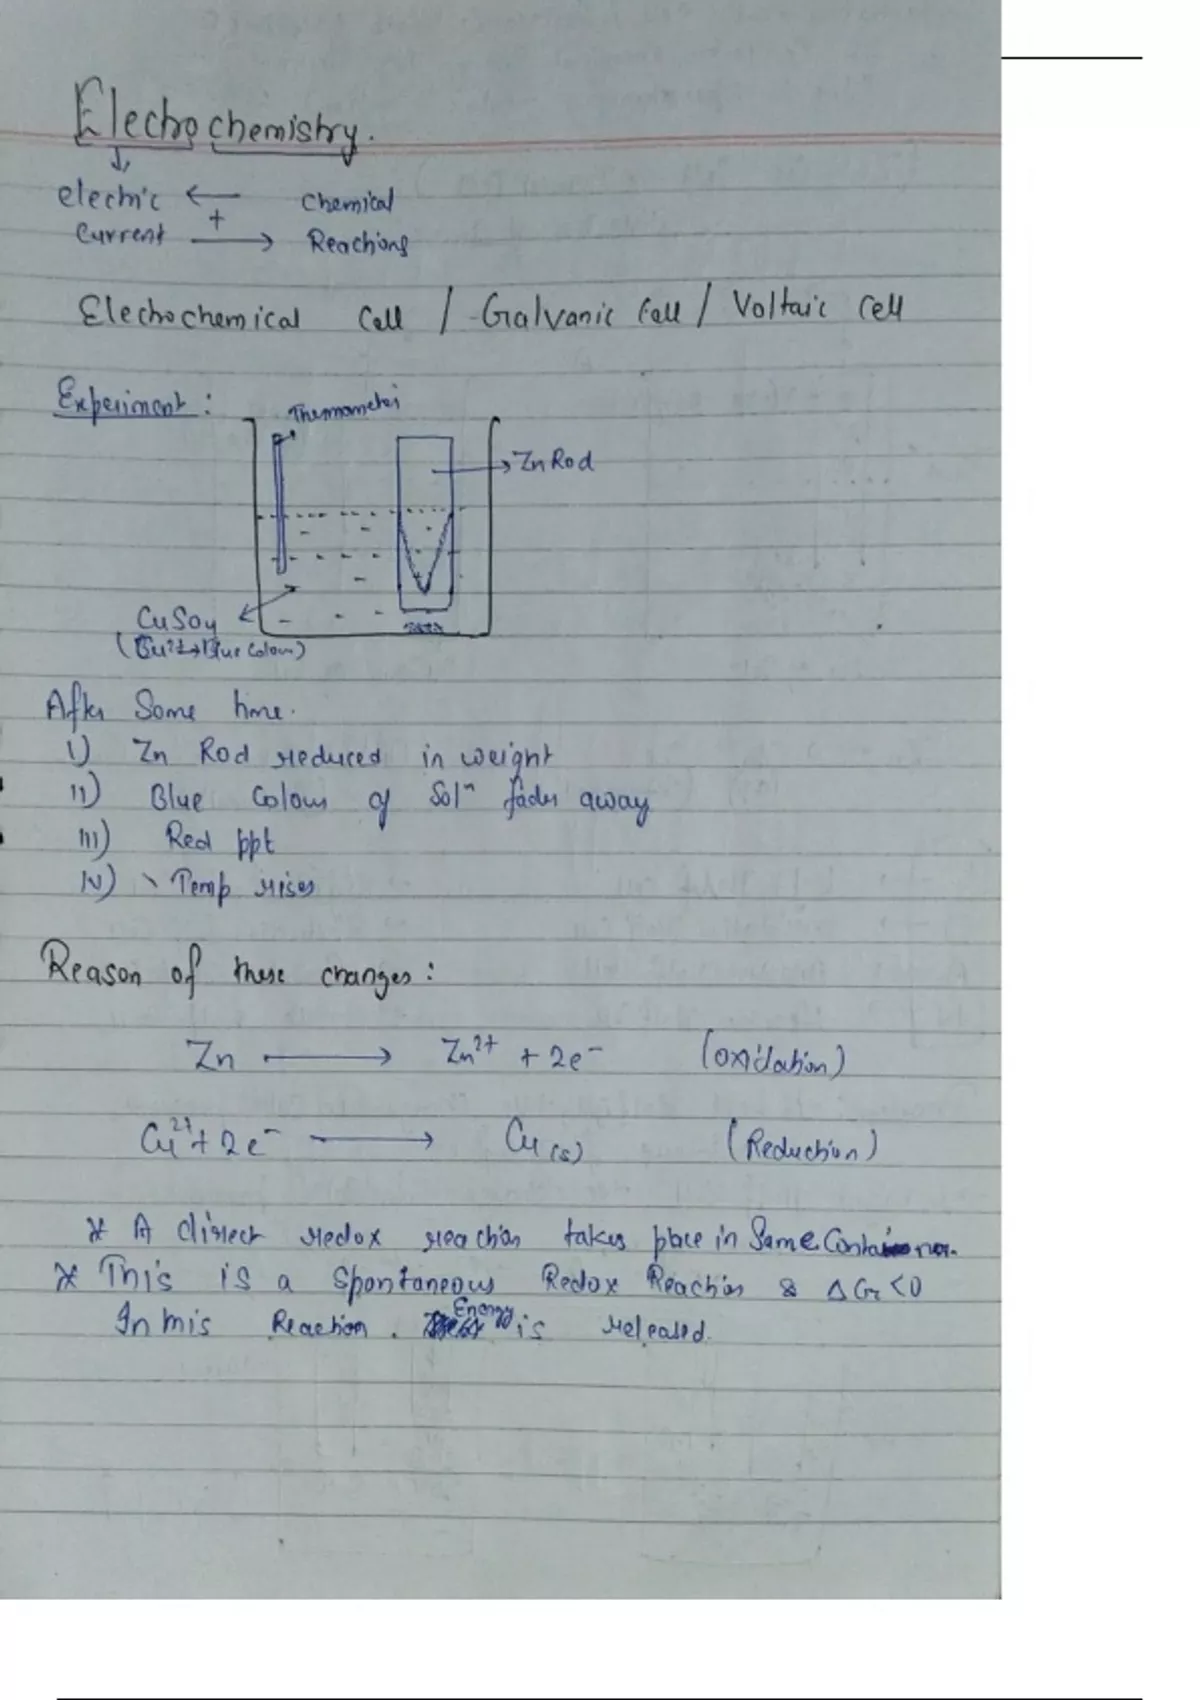 Electrochemistry.
electric ← Chemical
+
Current → Reactions
Electrochemical Cell / Galvanic Cell / Voltaic Cell
Experiment :
Thermometer
→ Zn Rod
CuSO4
(Cu2+→Blue Colour)
After Some time.
I) Zn Rod reduced in weight
II) Blue Colour of Solⁿ fades away
III) Red ppt
IV) Temp rises
Reason of these changes :
Zn → Zn²⁺ + 2e⁻ (oxidation)
Cu²⁺ + 2e⁻ → Cu(s) (Reduction)
* A direct redox reaction takes place in Same Container.
* This is a Spontaneous Redox Reaction & ΔG<0
In this Reaction. Energy is released.